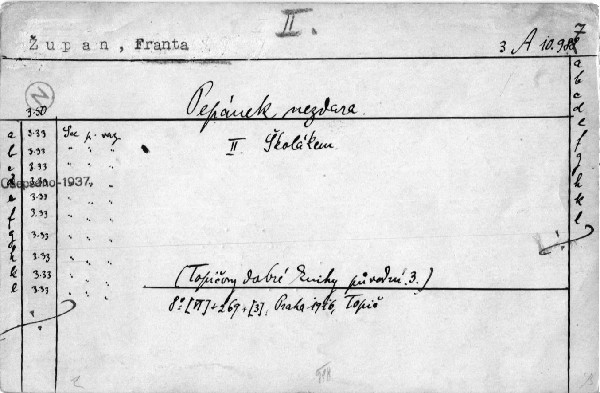 II.
Župan, Franta
3 A 10.982
Pepánek nezdara.
3.50
II Školákem.
a 3.33 Soc. p. vaz.
b 3.33 " " "
c 3.33 " " "
d 3.33 " " "
Čsepsáno-1937
e 3.33 " " "
f 3.33 " " "
g 3.33 " " "
h 3.33 " " "
k 3.33 " " "
l 3.33 " " "
a
b
c
d
e
f
g
h
k
l
(Topičovy dobré knihy původní. 3.)
8° [VI]+269+[3], Praha 1926, Topič